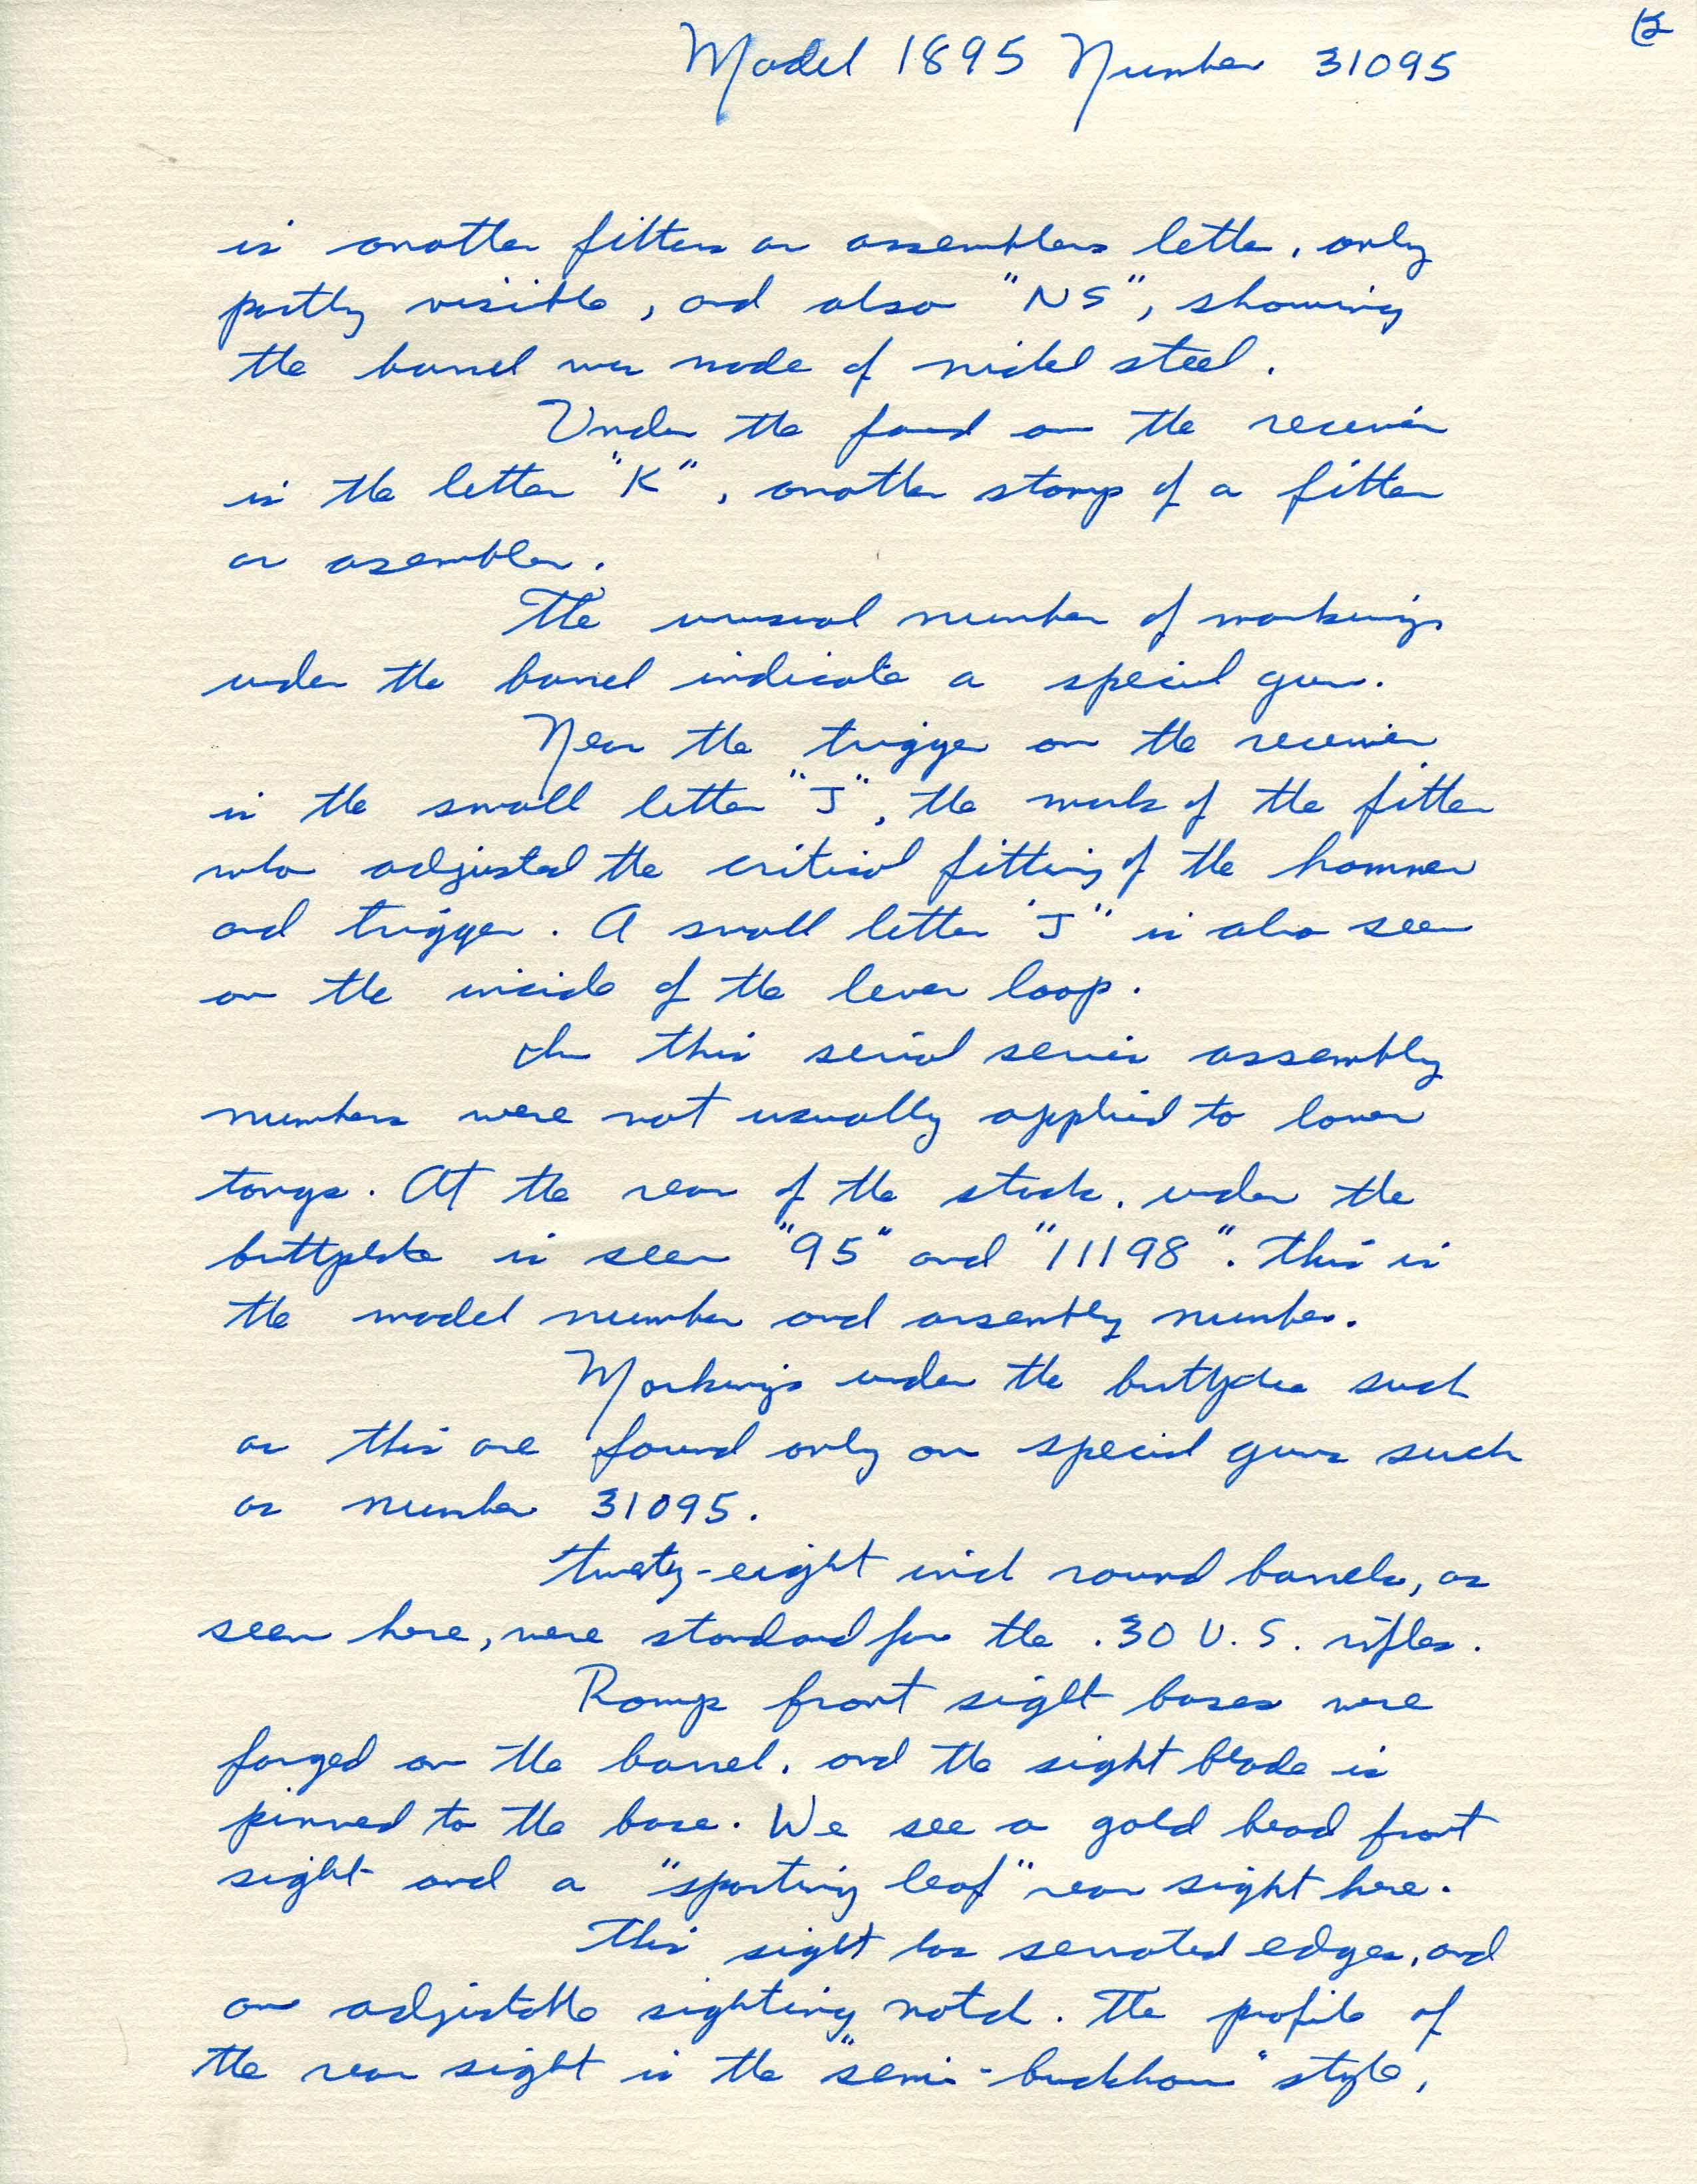 Model 1895 Number 31095
is another fitters or assemblers letter, only
partly visible, and also "NS", showing
the barrel was made of nickel steel.
Under the forend on the receiver
is the letter "K", another stamp of a fitter
or asembler.
The unusual number of markings
under the barrel indicate a special gun.
Near the trigger on the receiver
is the small letter "J", the mark of the fitter
who adjusted the critical fitting of the hammer
and trigger. A small letter "J" is also seen
on the inside of the lever loop.
In this serial series assembly
numbers were not usually applied to lower
tangs. At the rear of the stock, under the
buttplate is seen "95" and "11198". This is
the model number and assembly number.
Markings under the buttplate such
as this are found only on special guns such
as number 31095.
Twenty-eight inch round barrels, as
seen here, were standard for the .30 U.S. rifles.
Ramp front sight bases were
forged on the barrel, and the sight blade is
pinned to the base. We see a gold bead front
sight and a "sporting leaf" rear sight here.
This sight has serrated edges, and
an adjustable sighting notch. The profile of
the rear sight is the "semi-buckhorn" style,